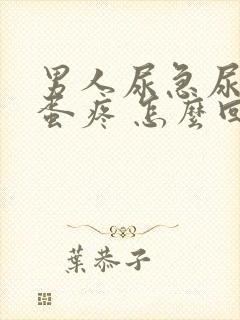 男人尿急尿
蛋疼 怎麼回
葉恭子